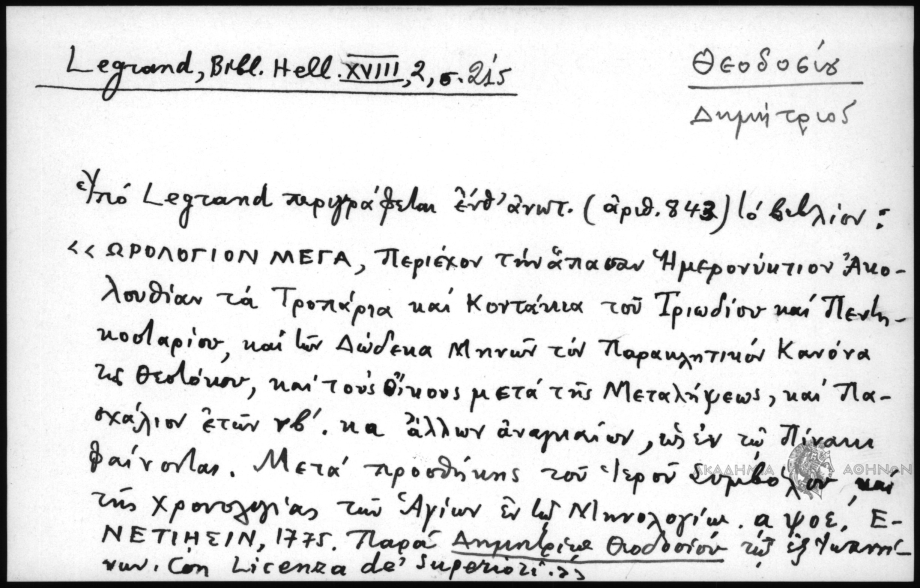 Legrand, Bibl. Hell. XVIII, 2, σ. 215
Θεοδοσίου
Δημήτριος
Ὑπό Legrand περιγράφεται ἐνθ' ἀνωτ. (ἀριθ. 843) τό βιβλίον:
«ΩΡΟΛΟΓΙΟΝ ΜΕΓΑ, Περιέχον τήν ἅπασαν Ἡμερονύκτιον Ἀκο-
λουθίαν τά Τροπάρια καί Κοντάκια τοῦ Τριωδίου καί Πεντη-
κοσταρίου, καί τῶν Δώδεκα Μηνῶν τόν Παρακλητικόν Κανόνα
τῆς Θεοτόκου, καί τούς Οἴκους μετά τῆς Μεταλήψεως, καί Πα-
σχάλιον ἐτῶν νβ'. κα ἄλλων ἀναγκαίων, ὡς ἐν τῷ Πίνακι
φαίνονται. Μετά προσθήκης τοῦ Ἱεροῦ Συμβόλου, καί
τῆς Χρονολογίας τῶν Ἁγίων ἐν τῷ Μηνολογίῳ. αψοε. Ε-
ΝΕΤΙΗΣΙΝ, 1775. Παρά Δημητρίῳ Θεοδοσίου τῷ ἐξ Ἰωαννί-
νων. Con Licenza de' Superiori.»
ΑΚΑΔΗΜΙΑ ΑΘΗΝΩΝ